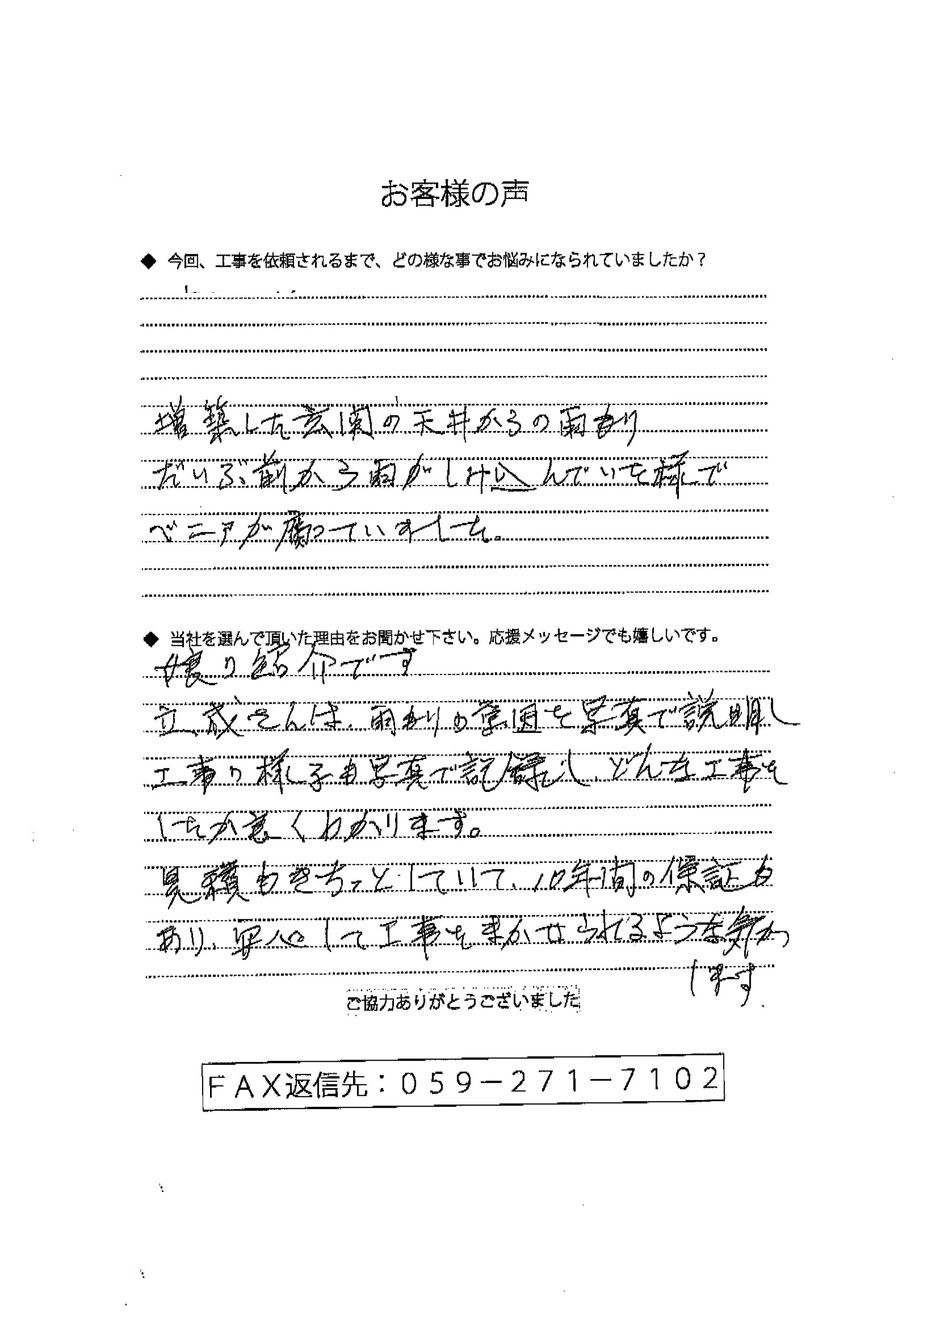 お客様の声
◆ 今回、工事を依頼されるまで、どの様な事でお悩みになられていましたか？
増築した玄関の天井からの雨もり
だいぶ前から雨がしみ込んでいた様で
ベニアが腐っていました。
◆ 当社を選んで頂いた理由をお聞かせ下さい。応援メッセージでも嬉しいです。
娘の紹介です
立成さんは、雨もりの原因を写真で説明し
工事の様子も写真で記録し、どんな工事を
したか良くわかります。
見積もきちっとしていて、10年間の保証も
あり、安心して工事をまかせられるような気が
します.
ご協力ありがとうございました
ＦＡＸ返信先：０５９－２７１－７１０２